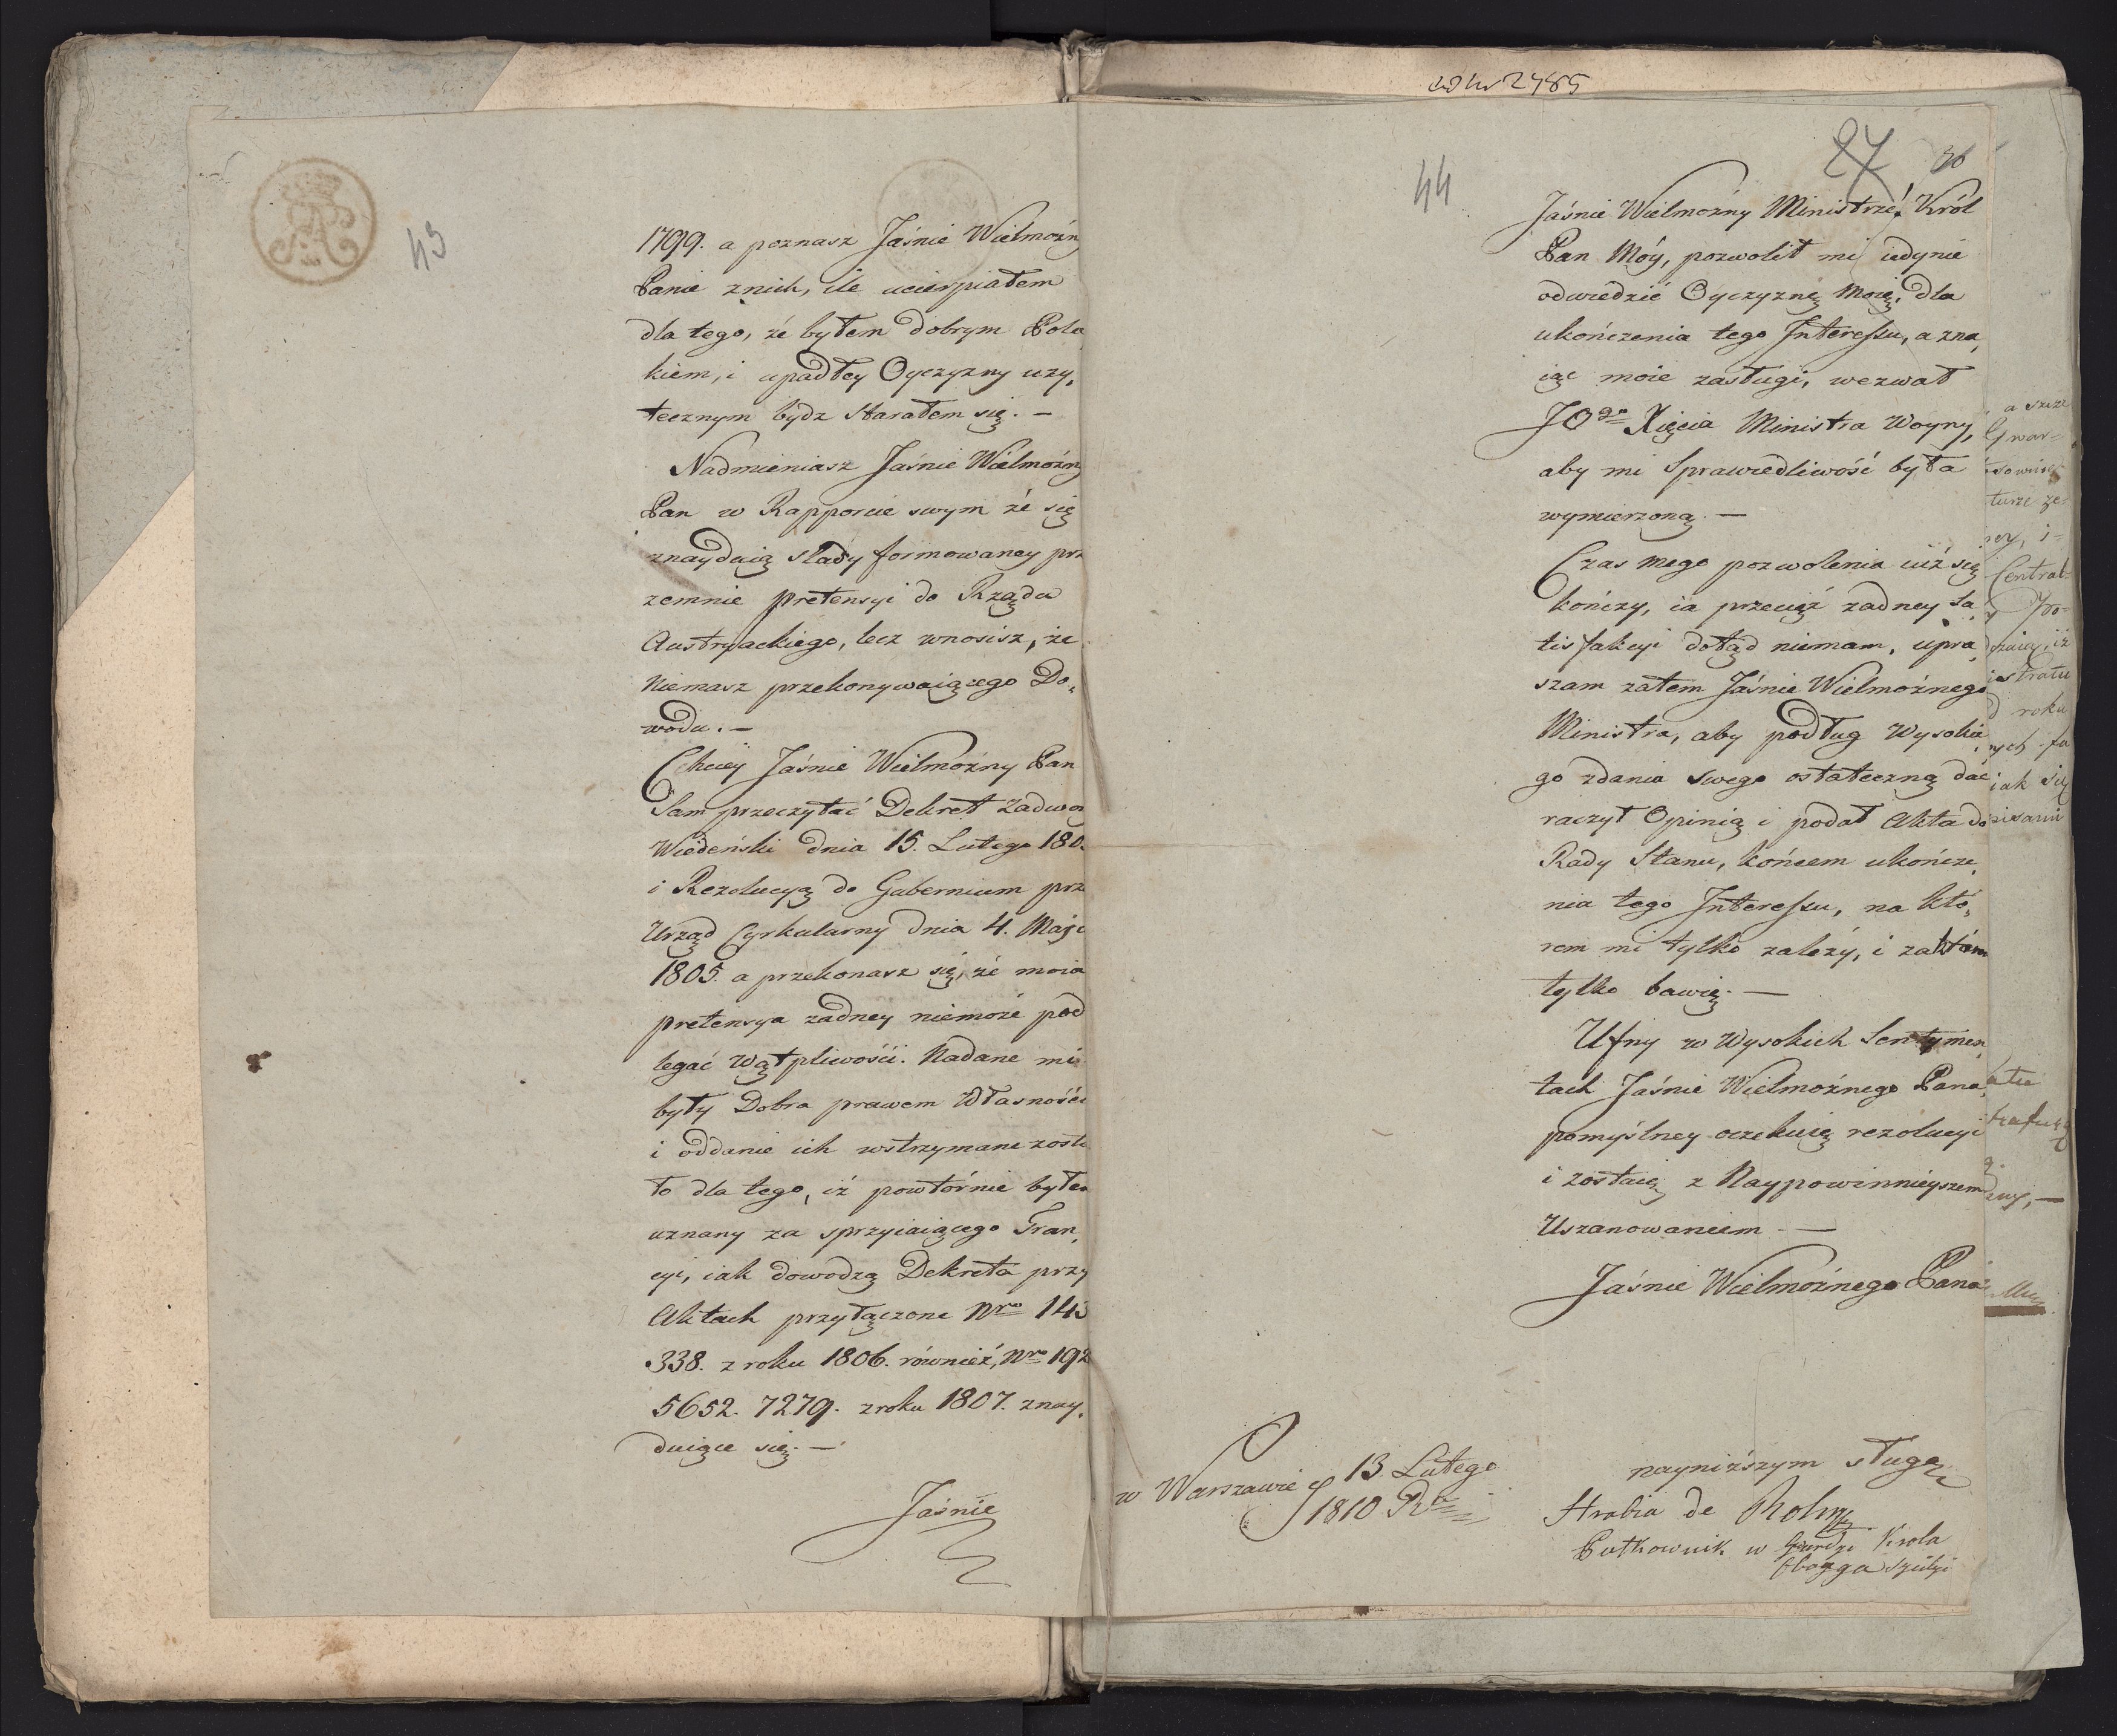 43
1799. a poznasz Jaśnie Wielmożn
Panie z nich, ile ucierpiałem
dla tego, że byłem dobrym Pola
kiem, i upadłey Oyczyzny uży,
tecznym bydz starałem się. —
Nadmieniasz Jaśnie Wielmożn
Pan w Rapporcie swym że się
znayduią slady formowaney prz
zemnie pretensyi do Rządu
Austryackiego, lecz wnosisz, że
niemasz przekonywaiącego Do,
wodu. —
Chciey Jaśnie Wielmożny Pan
Sam przeczytać Dekret Zadwo
Wiedeński dnia 15. Lutego 180
i Rezolucyą do Gubernium prz
Urząd Cyrkularny dnia 4. Maja
1805. a przekonasz się, że moia
pretensya żadney niemoże pod
legać Wątpliwości. Nadane mi
były Dobra prawem Własności
i oddanie ich wstrzymane zosta
to dla tego, iż powtórnie byłem
uznany za sprzyiaiącego Fran,
cyi, iak dowodzą Dekreta przy
Aktach przyłączone Nro 143
338. z roku 1806. również, Nro 192
5652. 7279. z roku 1807. znay,
duiące się. —
Jaśnie
2485
44
27
Jaśnie Wielmożny Ministrze! Król
Pan Móy, pozwolił mi iedynie
odwiedzić Oyczyznę Moię, dla
ukończenia tego Interessu, a zna,
iąc moie zasługi, wezwał
JOgo Xięcia Ministra Woyny,
aby mi Sprawiedliwość była
wymierzoną. —
Czas mego pozwolenia iuż się
kończy, ia przecięż żadney Sa,
tisfakcyi dotąd niemam, upra,
szam zatem Jaśnie Wielmożnego
Ministra, aby podług Wysokie,
go zdania swego ostateczną dać
raczył Opinią i podał Akta do
Rady Stanu, końcem ukończe,
nia tego Interessu, na któ,
rem mi tylko zależy, i za którem
tylko bawię. —
Ufny w Wysokich Sentymen,
tach Jaśnie Wielmożnego Pana,
pomyślney oczekuię rezolucyi
i zostaię z Naypowinnieyszem
Uszanowaniem —
Jaśnie Wielmożnego Pana
w Warszawie 13. Lutego
1810 Rku
nayniższym sługą
Hrabia de
Pułkownik w Gwardyi Króla